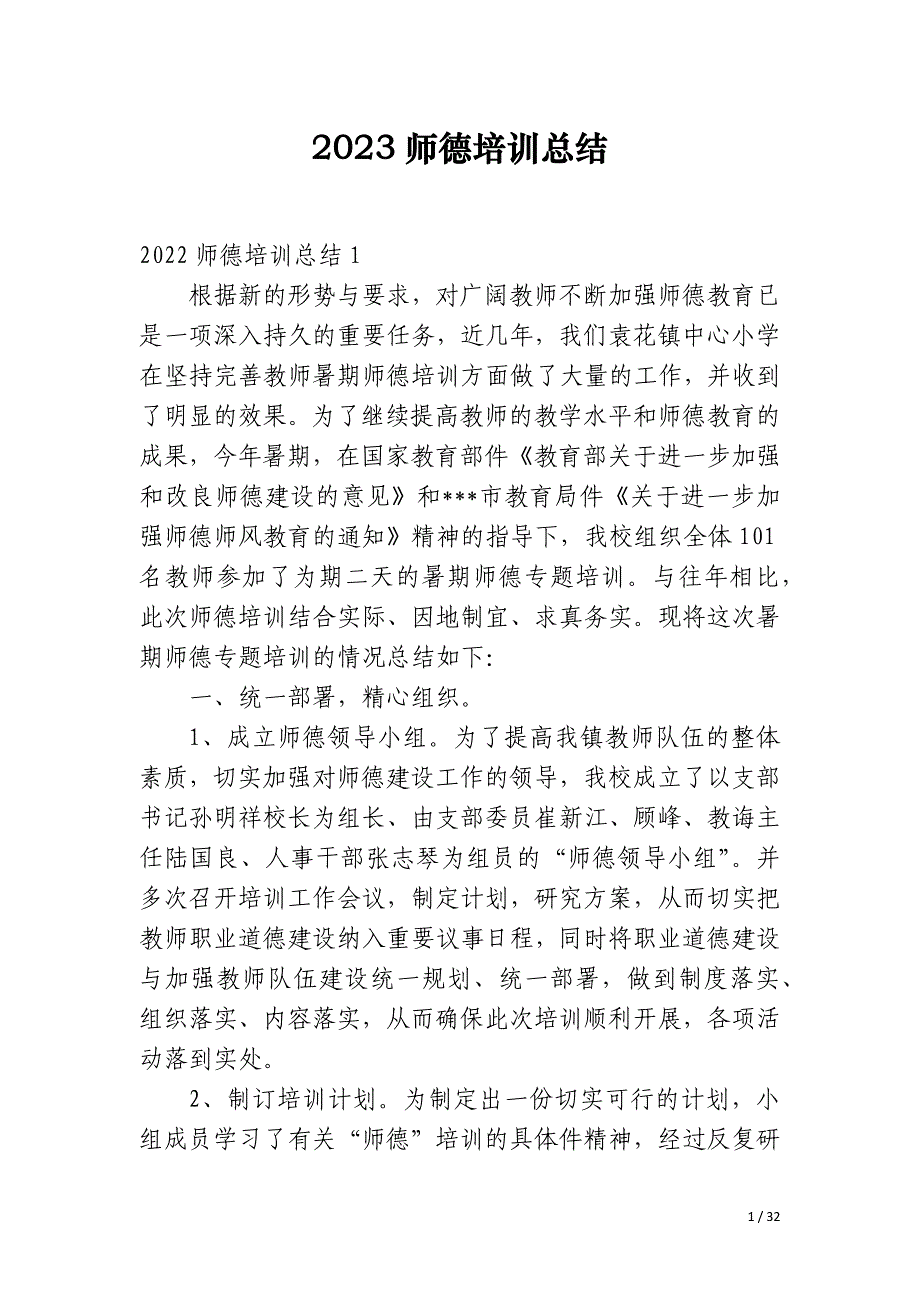 2023师德培训总结
2022师德培训总结1
根据新的形势与要求，对广阔教师不断加强师德教育已
是一项深入持久的重要任务，近几年，我们袁花镇中心小学
在坚持完善教师暑期师德培训方面做了大量的工作，并收到
了明显的效果。为了继续提高教师的教学水平和师德教育的
成果，今年暑期，在国家教育部件《教育部关于进一步加强
和改良师德建设的意见》和***市教育局件《关于进一步加
强师德师风教育的通知》精神的指导下，我校组织全体101
名教师参加了为期二天的暑期师德专题培训。与往年相比，
此次师德培训结合实际、因地制宜、求真务实。现将这次暑
期师德专题培训的情况总结如下：
一、统一部署，精心组织。
1、成立师德领导小组。为了提高我镇教师队伍的整体
素质，切实加强对师德建设工作的领导，我校成立了以支部
书记孙明祥校长为组长、由支部委员崔新江、顾峰、教诲主
任陆国良、人事干部张志琴为组员的“师德领导小组”。并
多次召开培训工作会议，制定计划，研究方案，从而切实把
教师职业道德建设纳入重要议事日程，同时将职业道德建设
与加强教师队伍建设统一规划、统一部署，做到制度落实、
组织落实、内容落实，从而确保此次培训顺利开展，各项活
动落到实处。
2、制订培训计划。为制定出一份切实可行的计划，小
组成员学习了有关“师德”培训的具体件精神，经过反复研
1 / 32